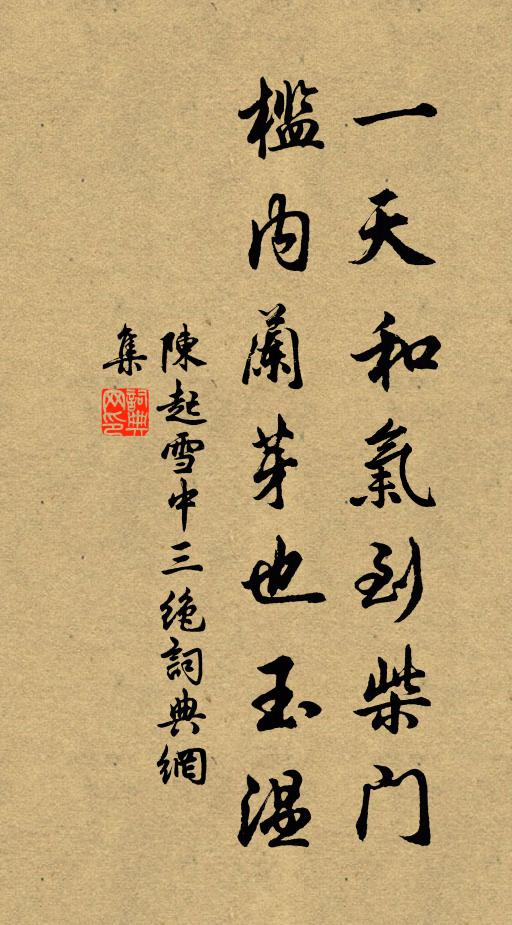 一天和氣到柴門
檻内蘭芽也玉温
陳起雪中三絶詞典網
集
詞典
网印